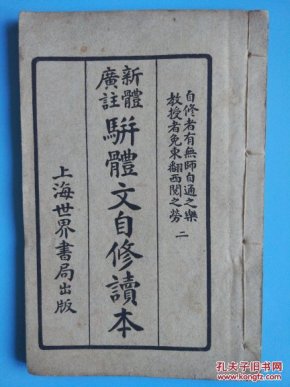 自修者有無師自通之樂
教授者免東翻西閱之勞
二
新體
廣註
駢體文自修讀本
上海世界書局出版
孔夫子旧书网
www.kongfz.com